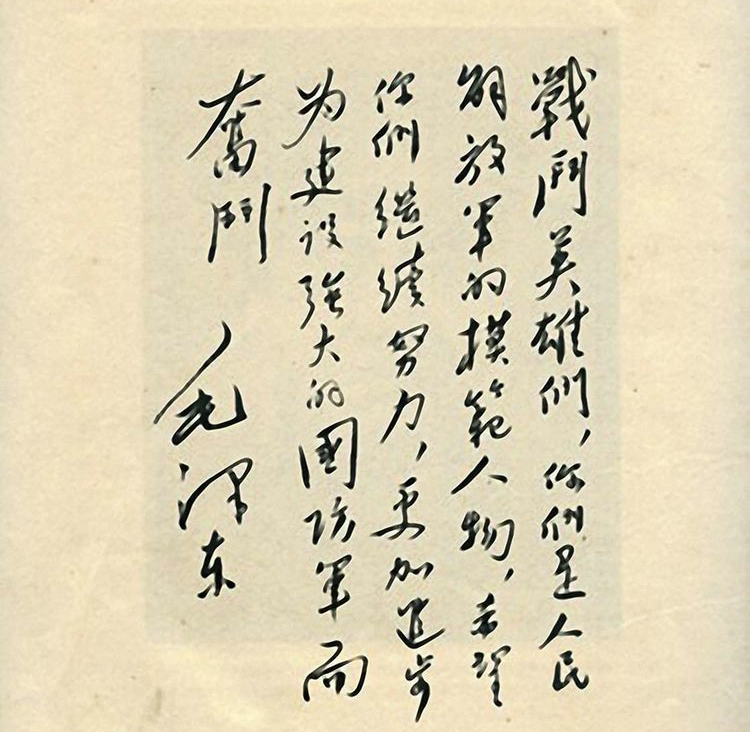 戰鬥英雄們，你們是人民
解放軍的模範人物，希望
你們继續努力，更加進步
为建設強大的國防軍而
奮鬥
毛澤东